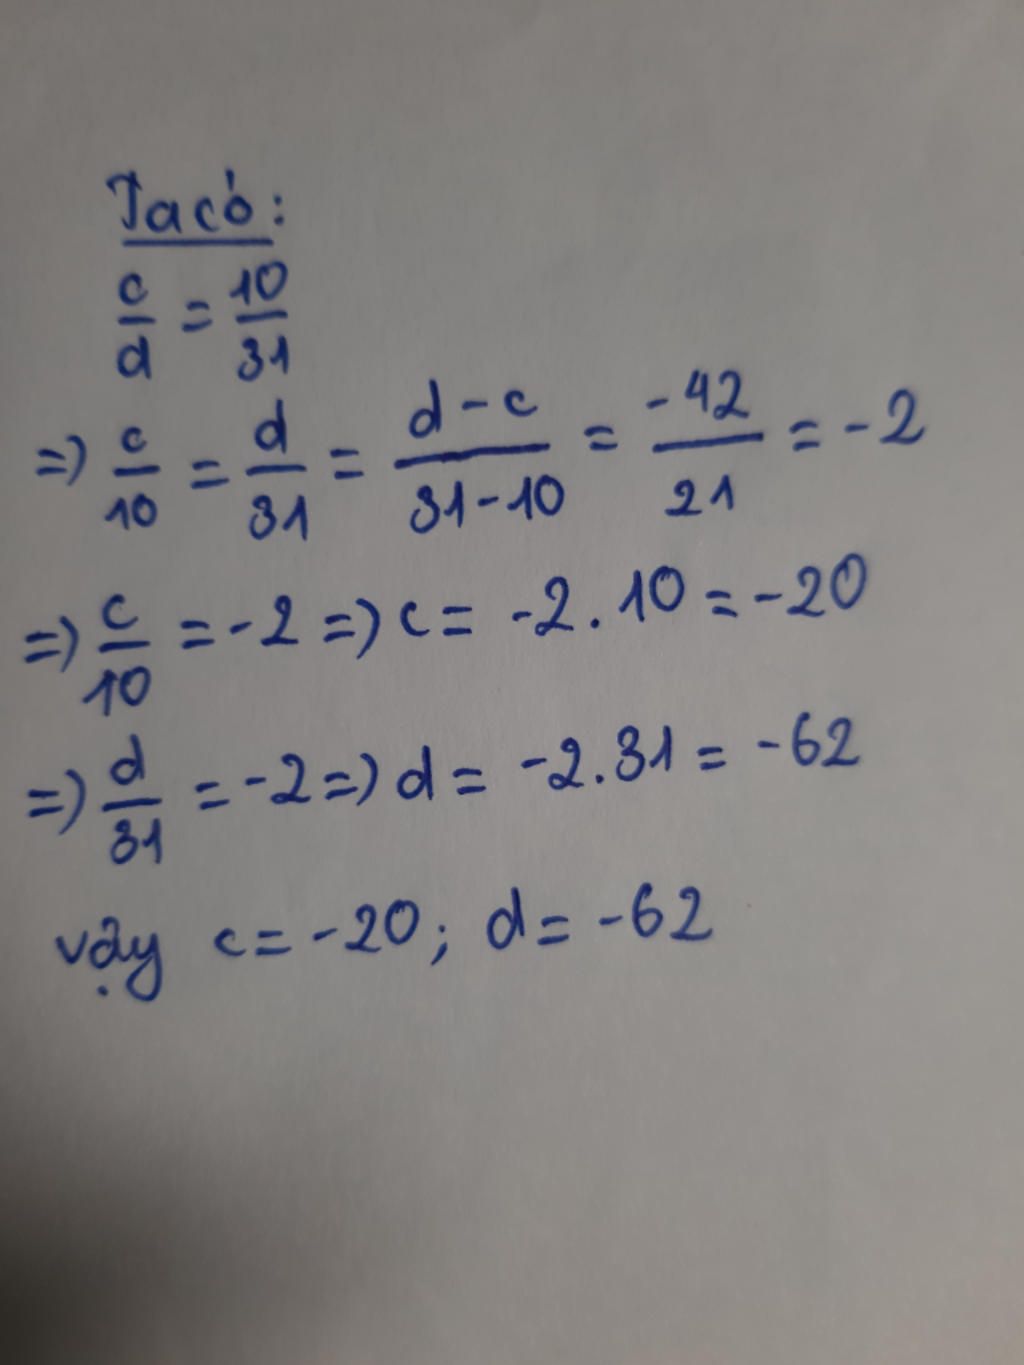 Ta có:
c/d = 10/31
=> c/10 = d/31 = d-c/31-10 = -42/21 = -2
=> c/10 = -2 => c = -2.10 = -20
=> d/31 = -2 => d = -2.31 = -62
vậy c = -20; d = -62